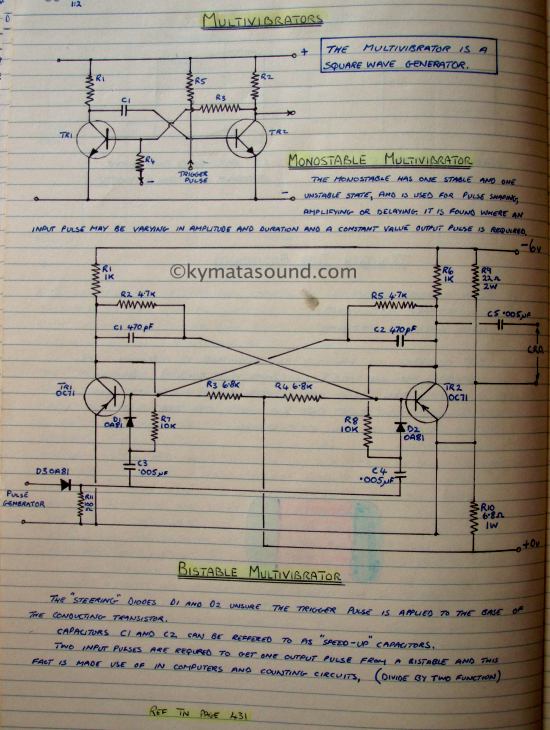 112
MULTIVIBRATORS
+
THE MULTIVIBRATOR IS A
SQUARE WAVE GENERATOR.
R1
R5
R2
C1
R3
TR1
TR2
R4
TRIGGER
PULSE
-
-
MONOSTABLE MULTIVIBRATOR
THE MONOSTABLE HAS ONE STABLE AND ONE
UNSTABLE STATE, AND IS USED FOR PULSE SHAPING,
AMPLIFYING OR DELAYING. IT IS FOUND WHERE AN
INPUT PULSE MAY BE VARYING IN AMPLITUDE AND DURATION AND A CONSTANT VALUE OUTPUT PULSE IS REQUIRED.
-6v
©kymatasound.com
R1
1K
R6
1K
R9
22Ω
2W
R2 4.7K
R5 4.7K
C1 470pF
C2 470pF
C5 .005µF
C.R.O.
TR1
OC71
R3 6.8K
R4 6.8K
TR2
OC71
D1
OA81
R7
10K
R8
10K
D2
OA81
C3
.005µF
C4
.005µF
D3 OA81
PULSE
GENERATOR
R11
100
Ω
R10
6.8Ω
1W
+0v
BISTABLE MULTIVIBRATOR
THE "STEERING" DIODES D1 AND D2 UNSURE THE TRIGGER PULSE IS APPLIED TO THE BASE OF
THE CONDUCTING TRANSISTOR.
CAPACITORS C1 AND C2 CAN BE REFFERED TO AS "SPEED-UP" CAPACITORS.
TWO INPUT PULSES ARE REQUIRED TO GET ONE OUTPUT PULSE FROM A BISTABLE AND THIS
FACT IS MADE USE OF IN COMPUTERS AND COUNTING CIRCUITS, (DIVIDE BY TWO FUNCTION)
REF TN PAGE 431